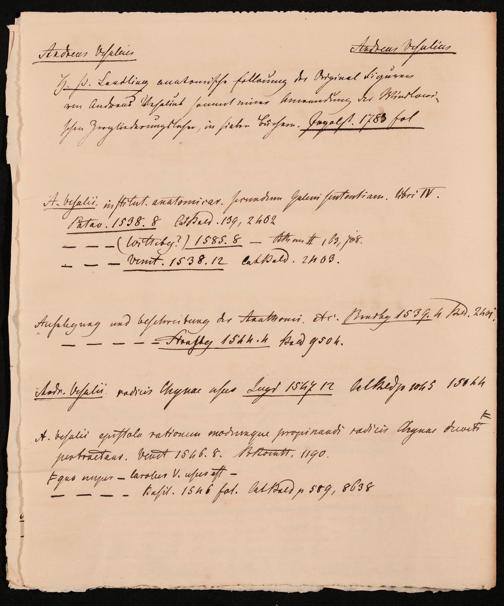 Andreas Vesalius Andreas Vesalius
H. P. Leveling anatomische Erklärung der Original Figuren
von Andreas Vesalius sammt einer Anwendung der Winslowi-
schen Zergliederungslehre, in sieben Büchern. Ingolst. 1783 fol
A. Vesalii institut. anatomicar. secundum Galeni sententiam. libri IV.
Patav. 1538. 8 Cat Bald. 139, 2402
— — — (Witteby?) 1585. 8 —
— — — Venet. 1538. 12 Cat Bald. 2403.
und Beschreibung der Anathomi. etc. 1539. 4 Bald.
— — — — 1544. 4 Bald 9504.
Andr. Vesalii radicis Chynae usus Lugd 1547 12 Cat Bald p 1045 15044
A. Vesalii epistola rationem modumque propinandi radicis Chynae decocti
pertractans. Venet 1546. 8. 1190.
quo nuper — Carolus V. usus est —
— — — — Basil. 1546 fol. Cat Bald p 589, 8638